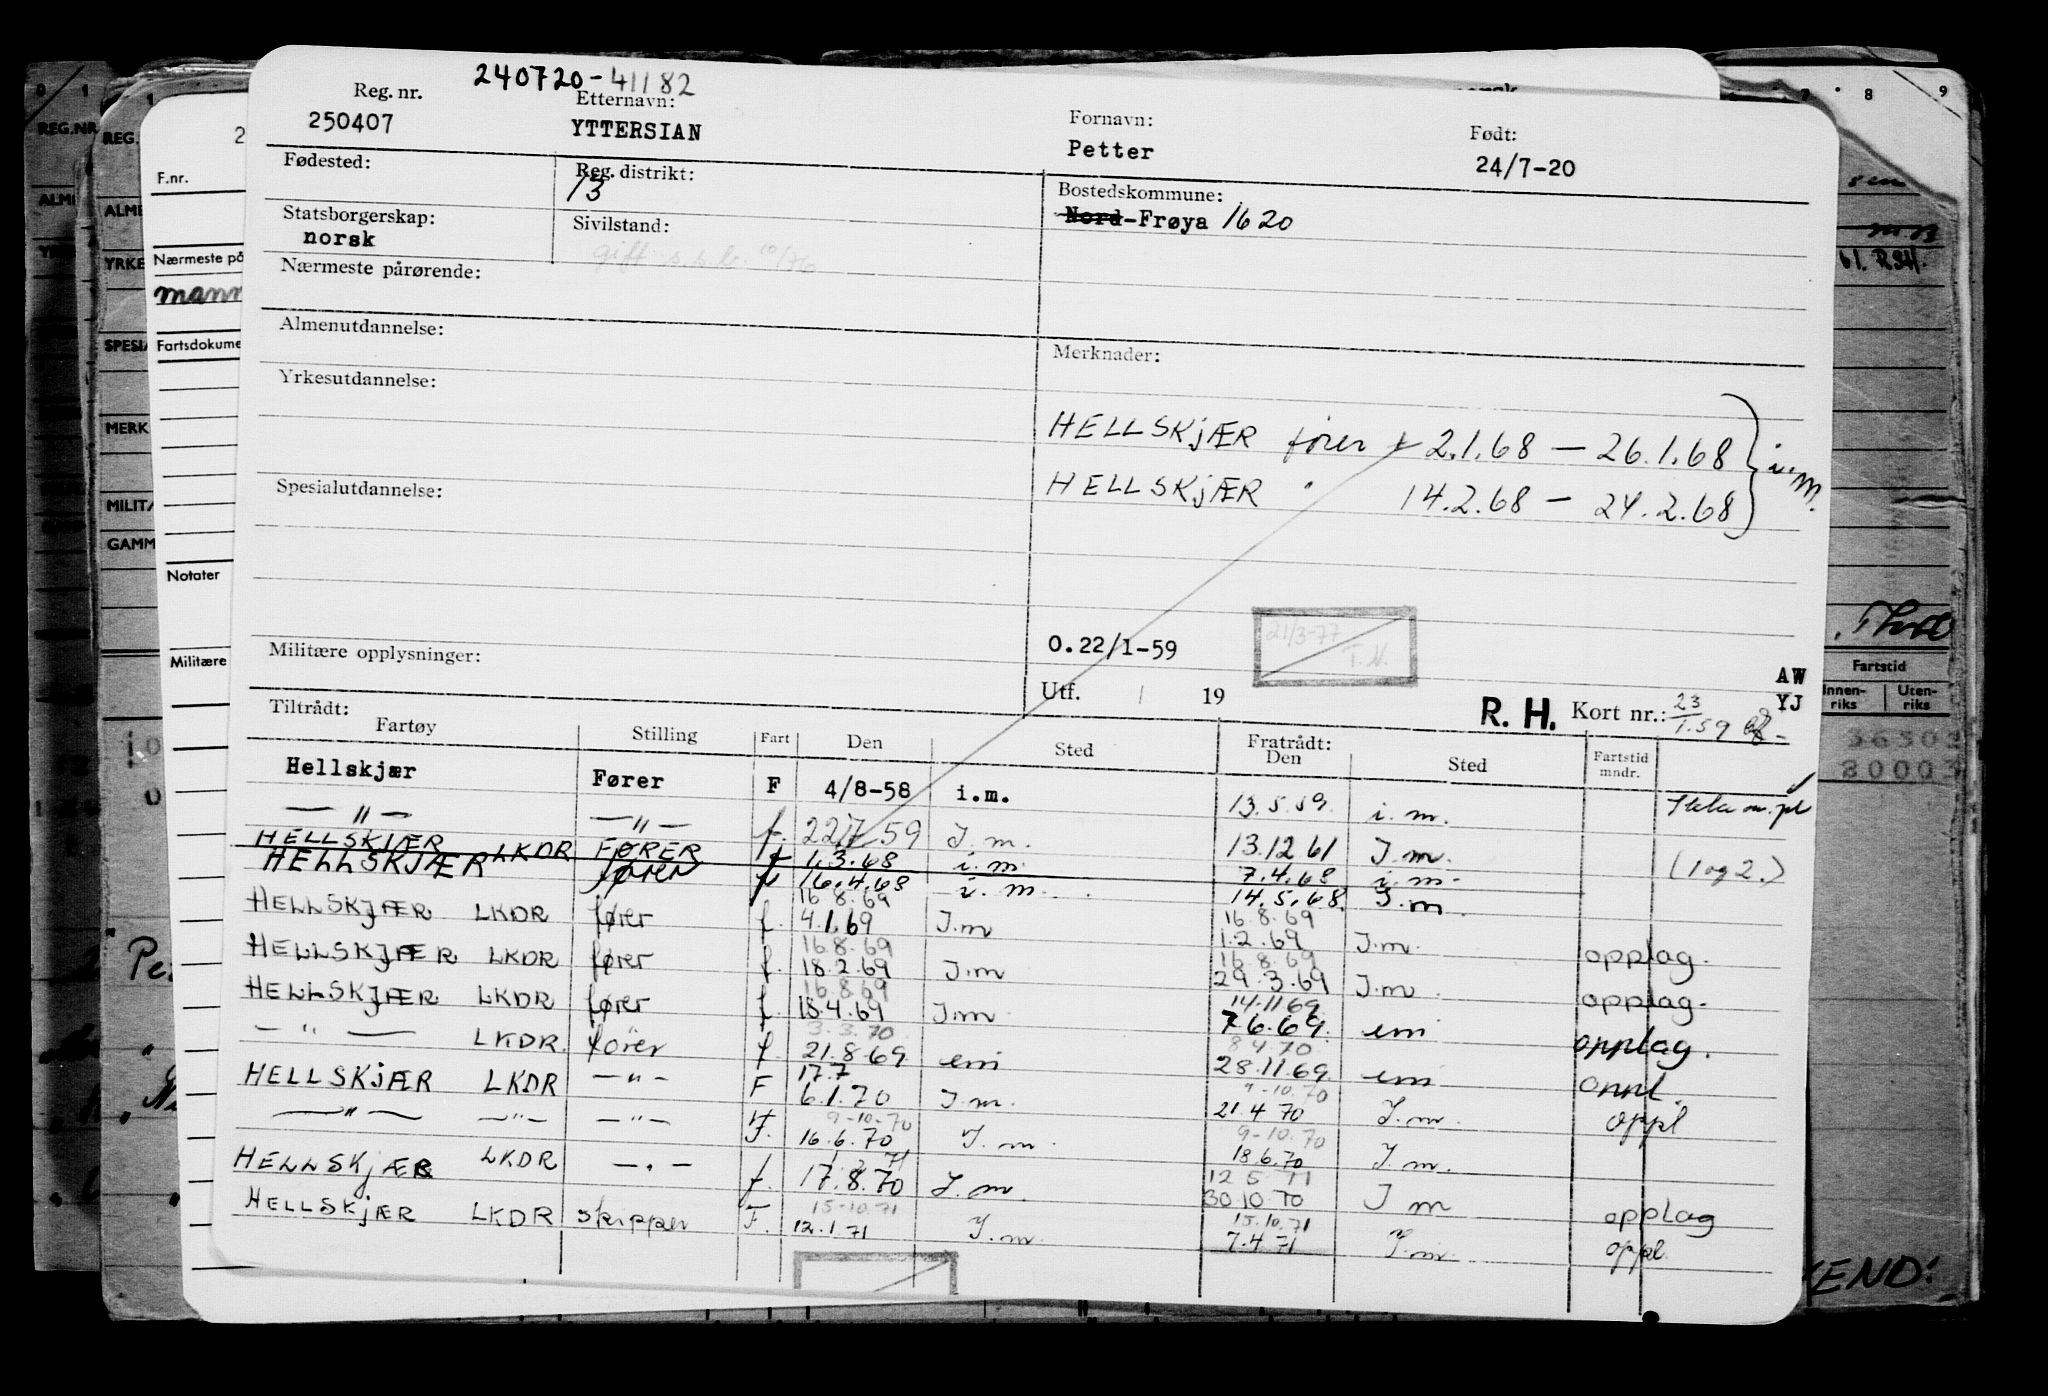 240720-41182
Reg. nr. Etternavn: Fornavn: Født:
250407 YTTERSIAN Petter 24/7-20
Fødested: Reg. distrikt: Bostedskommune:
13 Nord-Frøya 1620
Statsborgerskap: Sivilstand:
norsk gift s.s.b. 10/76
Nærmeste pårørende:
Almenutdannelse: Merknader:
Yrkesutdannelse:
HELLSKJÆR fører 2.1.68 — 26.1.68 } i.m.
Spesialutdannelse: HELLSKJÆR " 14.2.68 — 24.2.68
Militære opplysninger: O.22/1-59 21/3-77 T.N.
AW
Utf. / 19 R. H. Kort nr.: 23/1.59 YJ
Tiltrådt: Fratrådt:
Fartøy Stilling Fart Den Sted Den Sted Fartstid mndr.
Hellskjær Fører F 4/8-58 i.m. 13.5.59. i.m.
—"— —"— f. 22/7 59 I.m. 13.12 61 I.m. (1 og 2.)
HELLSKJÆR LKDR FØRER f 1.3.68 i.m. 7.4.68 i.m.
HELLSKJÆR fører f 16.4.68 i.m. 14.5.68. I.m.
16.8.69 16.8.69
HELLSKJÆR LKDR fører f. 4.1.69 I.m 1.2.69 I.m. opplag.
16.8.69 16.8.69
HELLSKJÆR LKDR fører f. 18.2.69 I.m 29.3.69 I.m. opplag.
16.8.69 14.11.69
HELLSKJÆR LKDR fører f. 15.4.69 I.m. 7.6.69. em opplag.
3.3.70 8 4 70
—"— LKDR. fører f. 21.8.69 em 28.11.69. em oppl.
17.7 9-10.70
HELLSKJÆR LKDR —"— F 6.1.70 I.m. 21.4.70 I.m. oppl
9-10.70 9-10.70
—"— —"— —"— F. 16.6.70 I.m. 18.6.70 I.m.
71 12 5 71
HELLSKJÆR LKDR —"— f. 17.8.70 I.m. 30 10 70 I m opplag
15-10.71 15.10.71
HELLSKJÆR LKDR skipper F. 12.1.71 I.m. 7.4.71 I.m. oppl.
REG.NR
REG.
F.nr.
ALME
YRKE
Nærmeste på
mann
SPESIA
Fartsdokume
MERK
MILITÆ
GAMM
Notater
Militære
61. RSH.
Fartstid
Innen-riks Uten-riks
56502